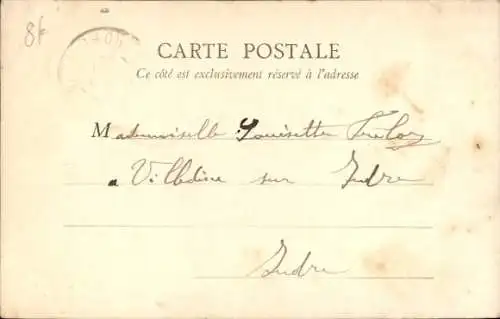 8f
CARTE POSTALE
Ce côté est exclusivement réservé à l'adresse
Mademoiselle Louisette
a Villedieu sur Indre
Indre